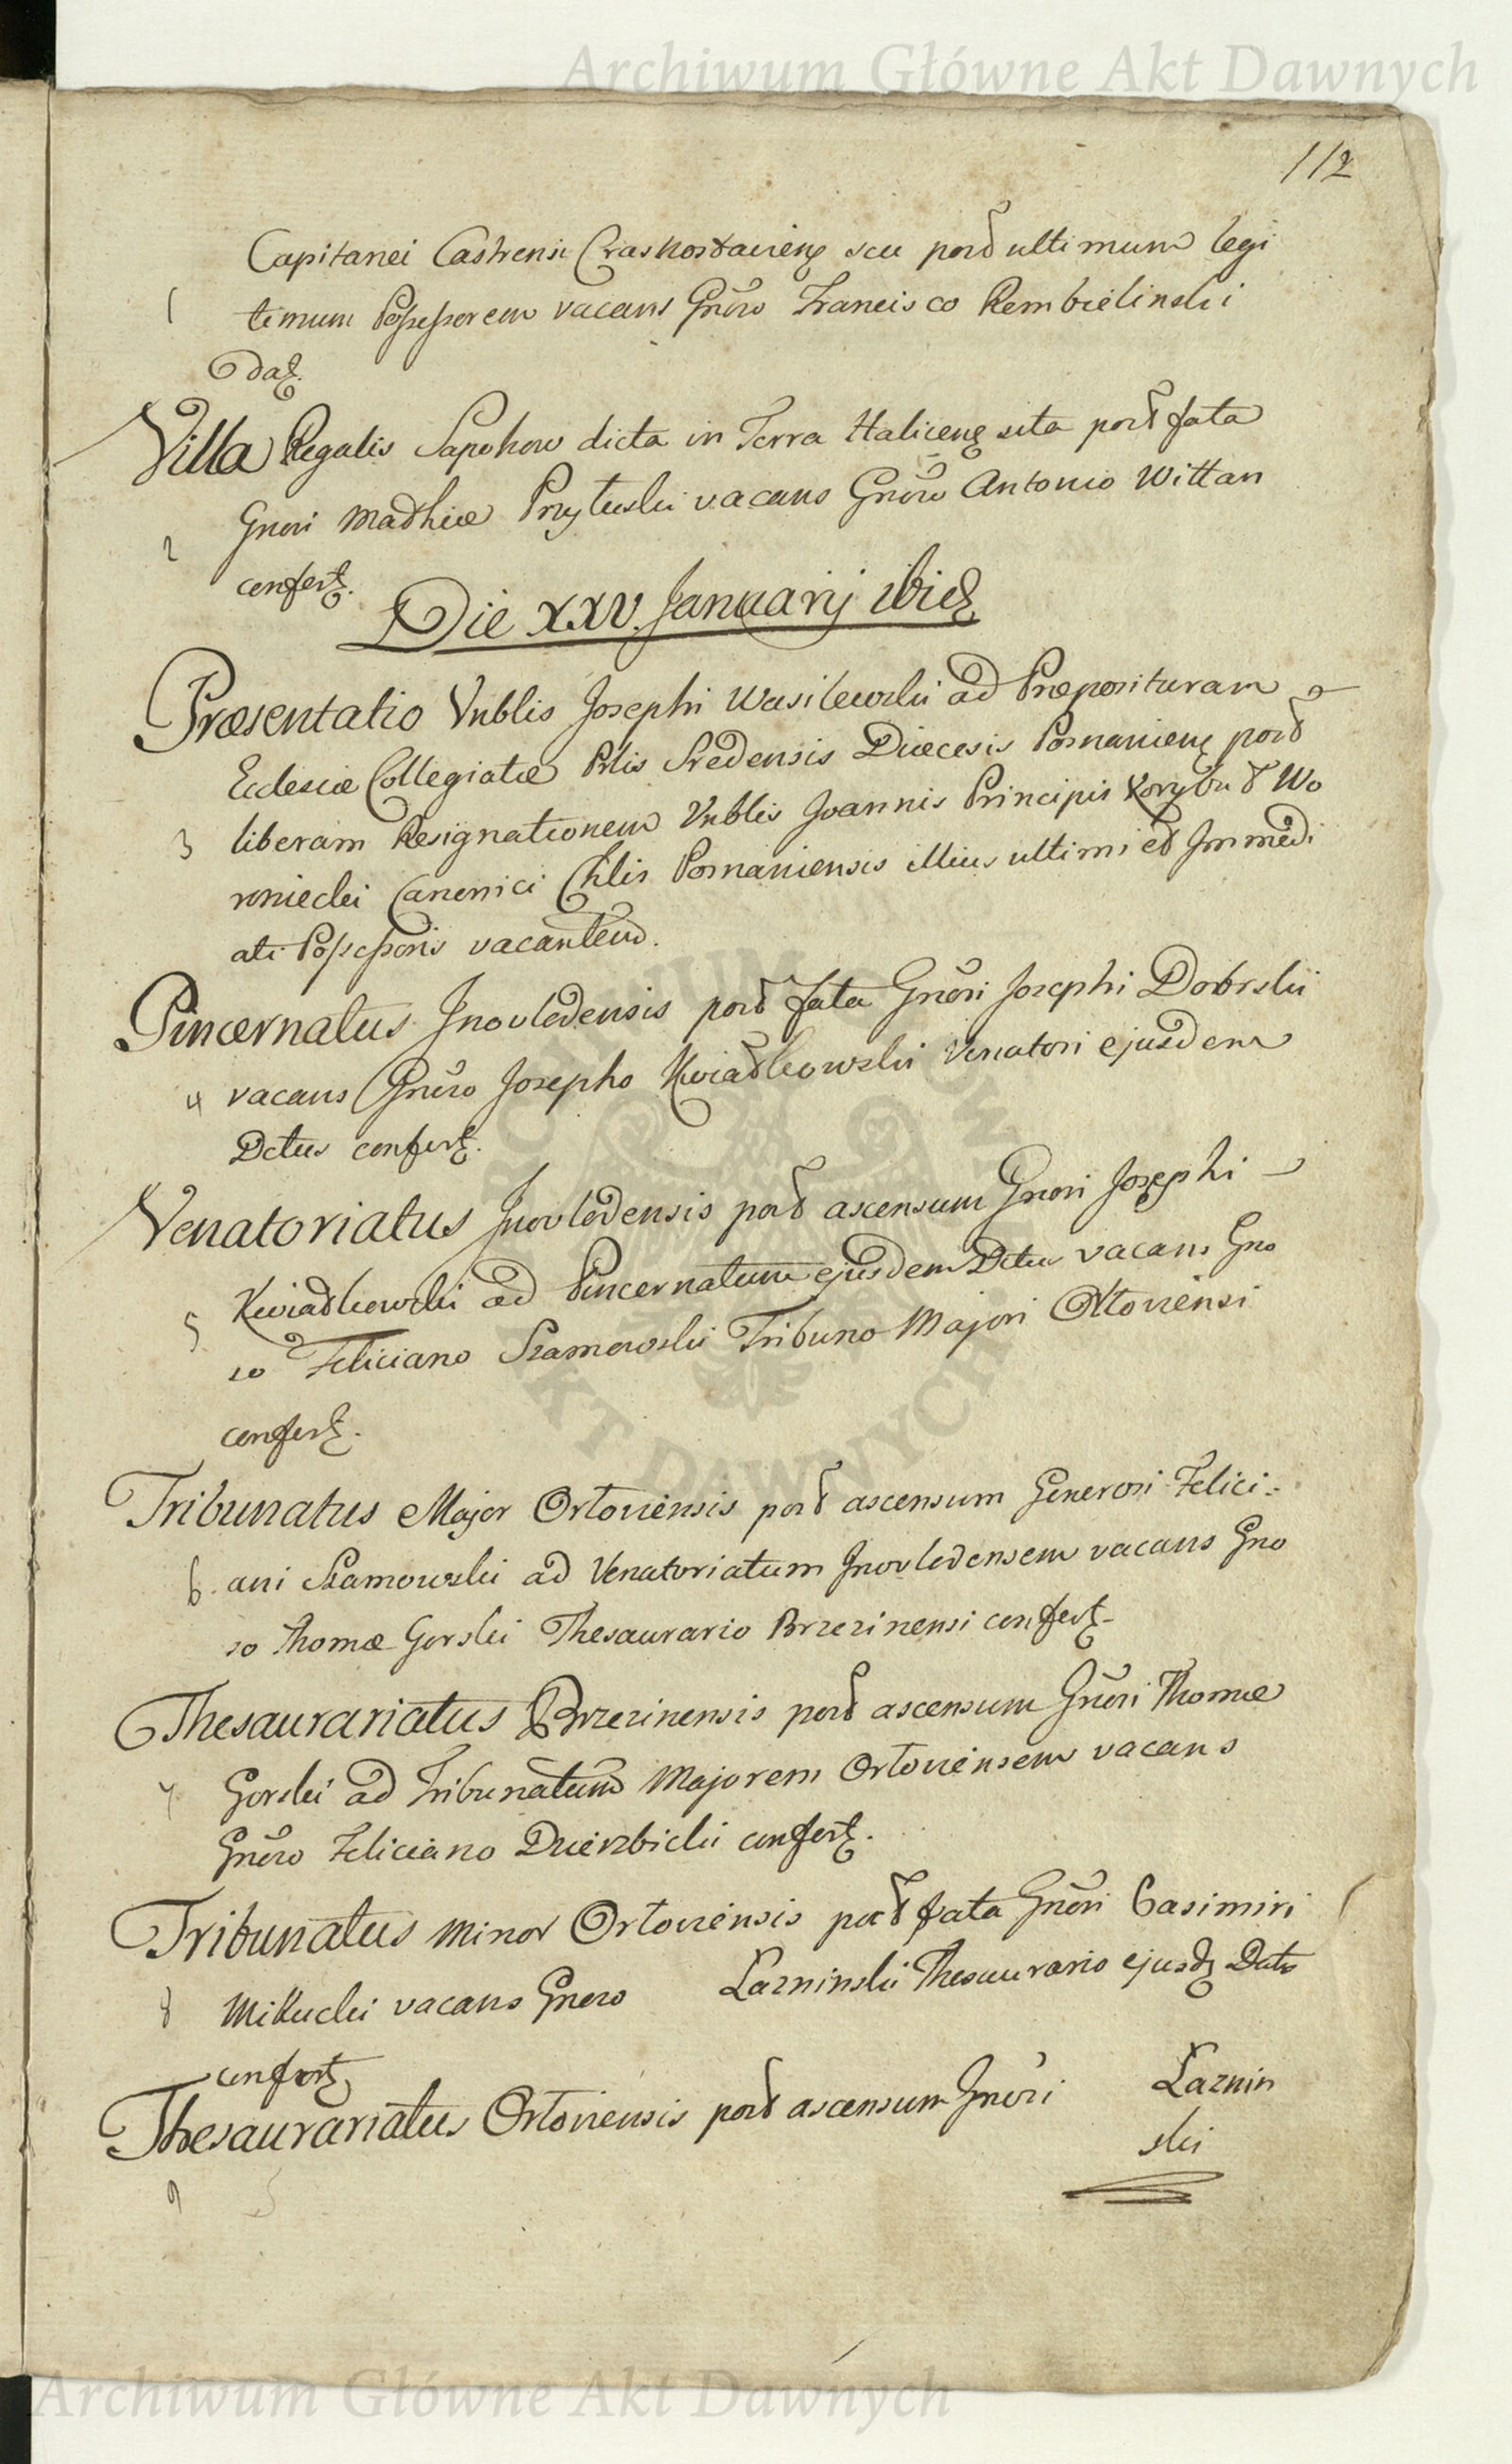 Archiwum Główne Akt Dawnych
112
Capitanei Castrensi Crasnostaviens seu post ultimum legi
1 timum Possessorem vacans Gnẽro Francisco Rembielinski
dat.
Villa Regalis Sapohow dicta in Terra Haliciens sita post fata
Gneri Mathiæ Przyłuski vacans Gnẽro Antonio Wittan
2
confert.
Die XXV. Januarij ibid
Præsentatio Vnblis Josephi Wasilewski ad Præposituram
Ecclesiæ Collegiatæ Prlis Sredensis Diæcesis Posnaniens post
3 liberam Resignationem Vnblis Joannis Principis Korybut Wo
roniecki Canonici Chlis Posnaniensis illius ultimi et Immedi
ati Possessoris vacantem.
Pincernatus Inovlodensis post fata Gnẽri Josephi Dobrski
4 vacans Gnẽro Josepho Kwiatkowski Venatori ejusdem
Dctus confert.
Venatoriatus Inovlodensis post ascensum Gneri Josephi
5 Kwiatkowski ad Pincernatum ejusdem Dctus vacans Gno
so Feliciano Szamowski Tribuno Majori Orloviensi
confert.
Tribunatus Major Orloviensis post ascensum Generosi Felici:
6. ani Szamowski ad Venatoriatum Inovlodensem vacans Gno
so Thomæ Gorski Thesaurario Brzezinensi confert
Thesaurariatus Brzezinensis post ascensum Gnẽri Thomæ
7 Gorski ad Tribunatum Majorem Orloviensem vacans
Gnẽro Feliciano Dzierzbicki confert.
Tribunatus Minor Orloviensis post fata Gnẽri Casimiri
8 Mikucki vacans Gnero Lazninski Thesaurario ejusd Dctus
confert
Thesaurariatus Orloviensis post ascensum Gnẽri Laznin
ski
9
ARCHIWUM GŁÓWNE AKT DAWNYCH
Archiwum Główne Akt Dawnych